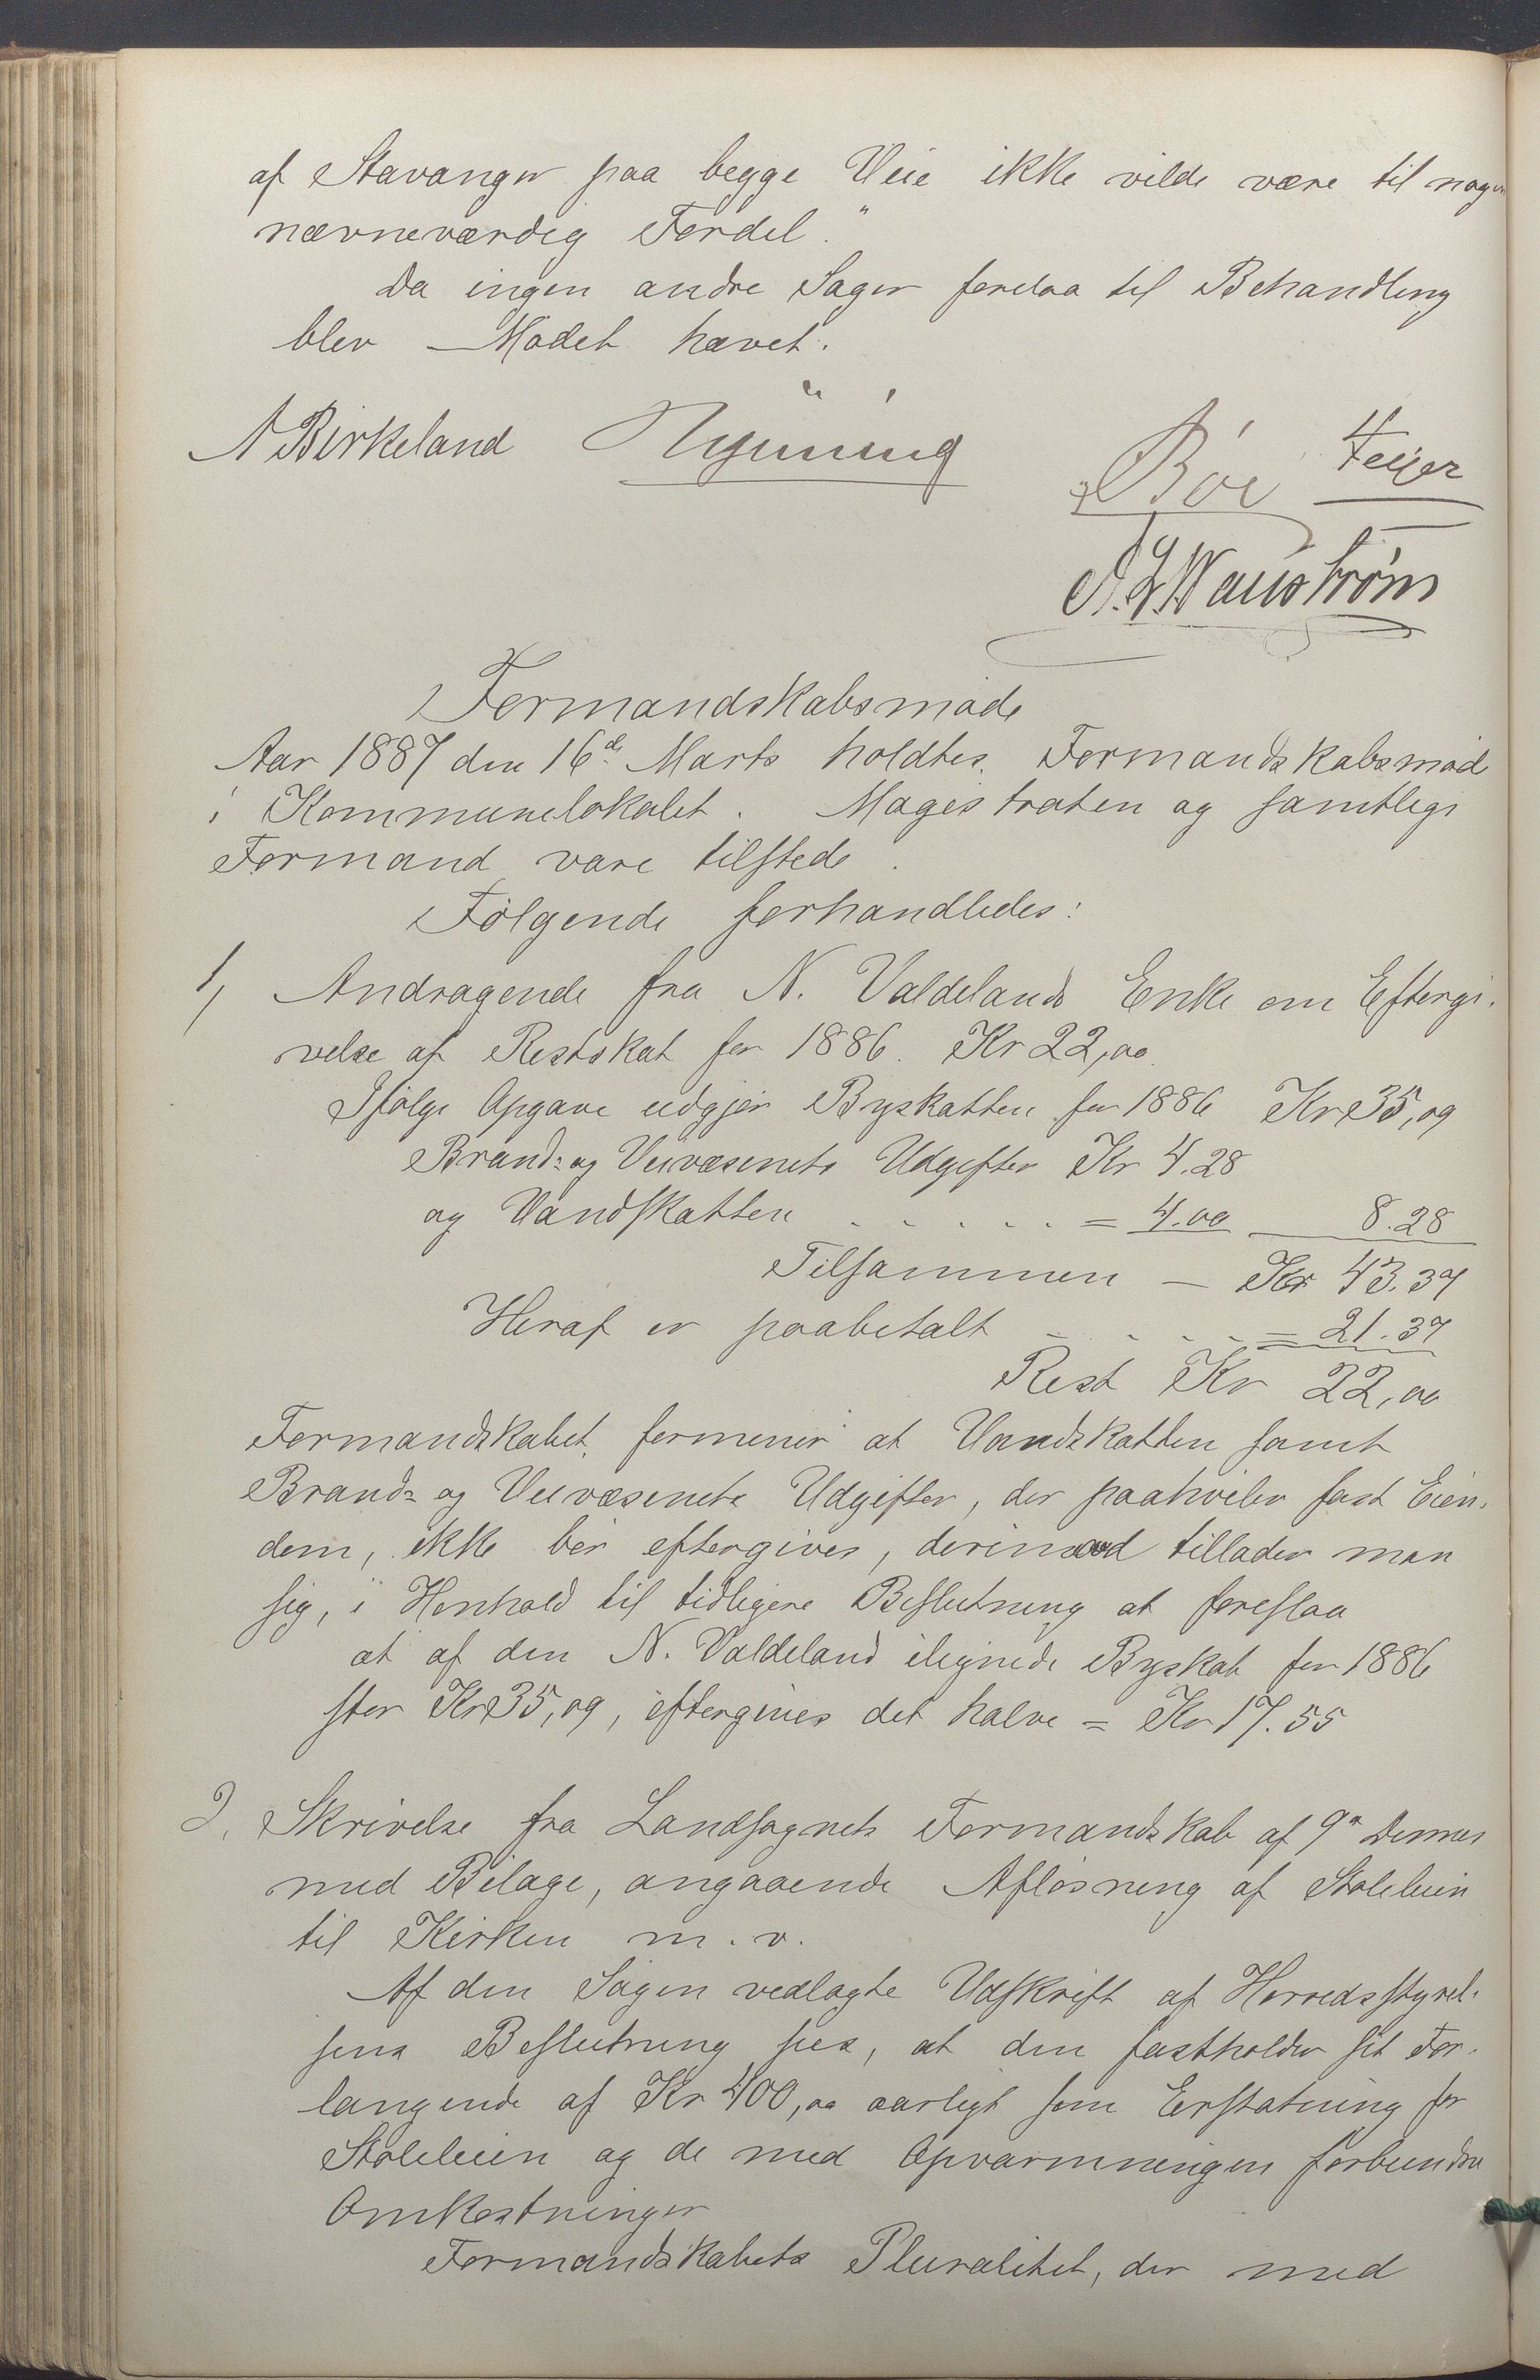 af Stavanger paa begge Veie ikke vilde være til nogen
nævneværdig Fordel."
Da ingen andre Sager forelaa til Behandling
blev Mødet hævet.
A Birkeland Nyüning Bøe Feyer
A. L. Wanstrøm
Formandskabsmøde
Aar 1887 den 16de Marts holdtes Formandskabsmøde
i Kommunelokalet. Magistraten og samtlige
Formænd vare tilstede.
Følgende forhandledes:
1, Andragende fra N. Valdelands Enke om Eftergi-
velse af Restskat for 1886. Kr 22,00
Ifølge Opgave udgjør Byskatten for 1886 Kr 35,09
Brand- og Veivæsenets Udgifter Kr 4.28
og Vandskatten . . . . . = 4.00 8.28
Tilsammen - Kr 43.37
Heraf er paabetalt - . . . = 21.37
Rest Kr 22,00
Formandskabet formener at Vandskatten samt
Brand- og Veivæsenets Udgifter, der paahviler fast Eien-
dom, ikke bør eftergives, derimod tillader man
sig, i Henhold til tidligere Beslutning at foreslaa
at af den N. Valdeland ilignede Byskat for 1886
stor Kr 35,09, eftergives det halve = Kr 17.55
2. Skrivelse fra Landsognets Formandskab af 9de Dennes
med Bilage, angaaende Afløsning af Stoleleien
til Kirken m. v.
Af den Sagen vedlagte Udskrift af Herredsstyrel-
sens Beslutning sees, at den fastholder sit For-
langende af Kr 400,00 aarligt som Erstatning for
Stoleleien og de med Opvarmningen forbundne
Omkostninger
Formandskabets Pluralitet, der med